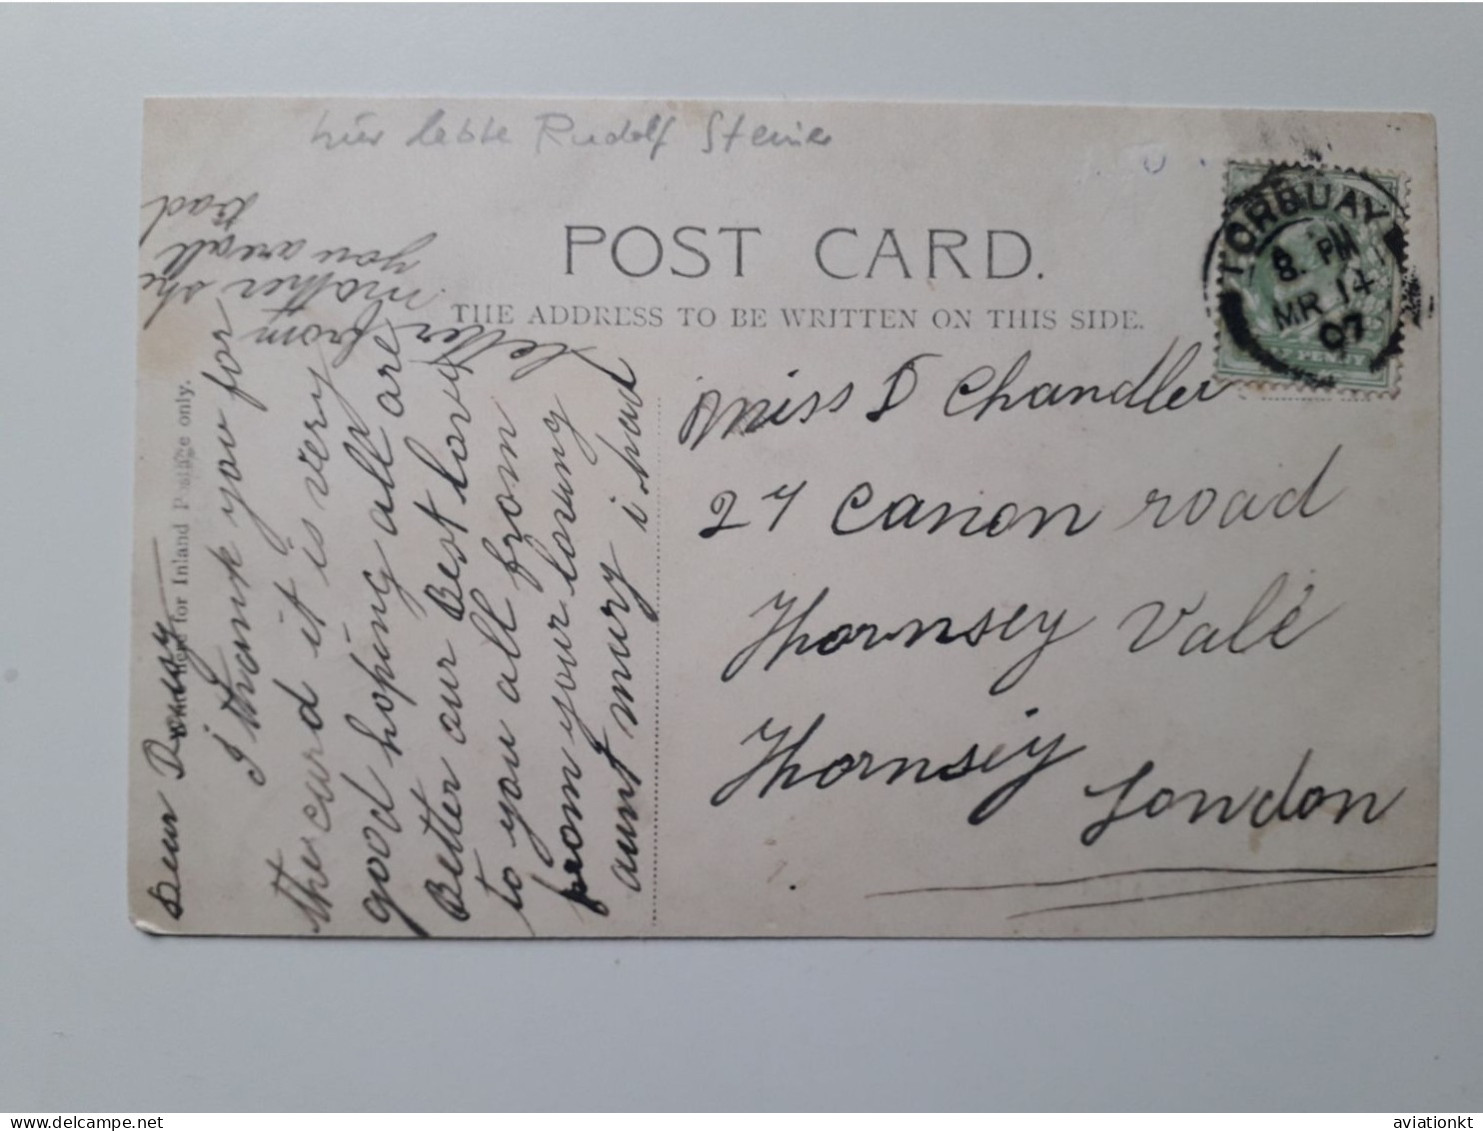 hier lebte Rudolf Steiner
POST CARD.
THE ADDRESS TO BE WRITTEN ON THIS SIDE.
TORQUAY
8. PM
MR 14
07
PENNY
for Inland Postage only.
Miss D Chandler
27 Canon road
Hornsey Vale
Hornsey
London
Dear
I thank you for
the card it is very
good hoping all are
Better our Best love
to you all from
from your loving
aunt mury i had
letter from
mother she
you are all
Bad
aviationkt